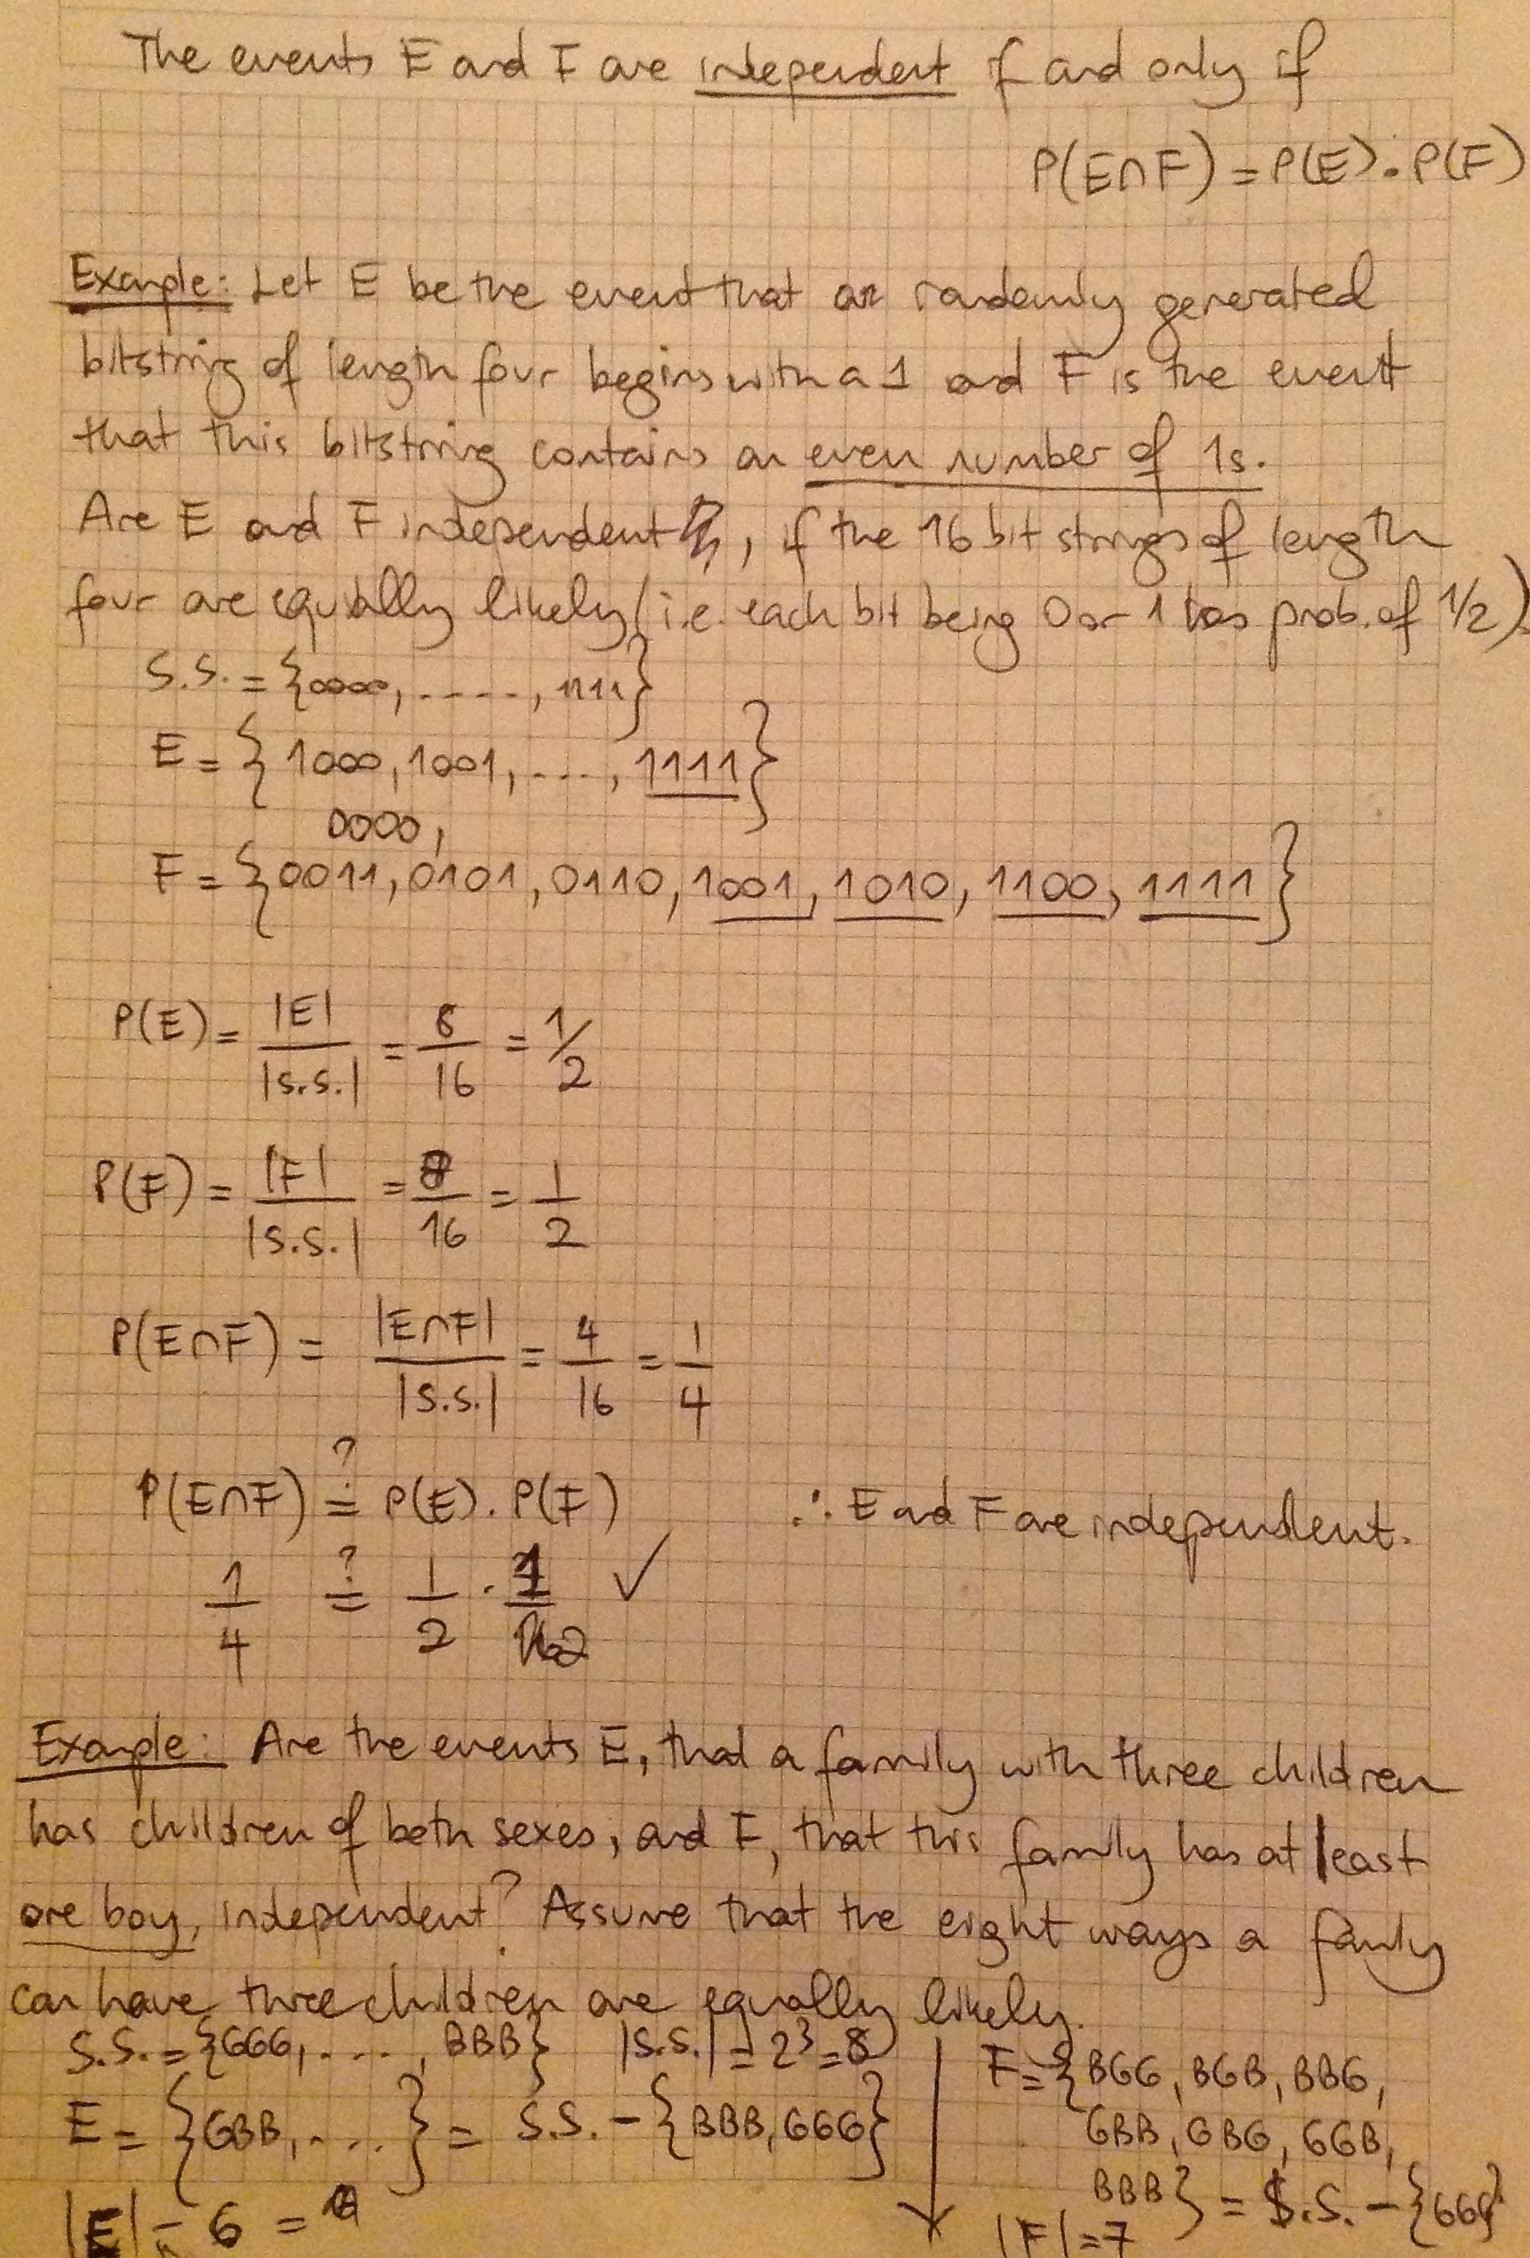 The events E and F are independent if and only if
P(E∩F) = P(E) . P(F)
Example: Let E be the event that a randomly generated
bitstring of length four begins with a 1 and F is the event
that this bitstring contains an even number of 1s.
Are E and F independent, if the 16 bit strings of length
four are equally likely (i.e. each bit being 0 or 1 has prob. of 1/2).
S.S. = {0000, ....., 1111}
E = {1000, 1001, ...., 1111}
0000,
F = {0011, 0101, 0110, 1001, 1010, 1100, 1111}
P(E) = |E| / |S.S.| = 8/16 = 1/2
P(F) = |F| / |S.S.| = 8/16 = 1/2
P(E∩F) = |E∩F| / |S.S.| = 4/16 = 1/4
P(E∩F) ?= P(E) . P(F) ∴ E and F are independent.
1/4 ?= 1/2 . 1/2 ✓
Example: Are the events E, that a family with three children
has children of both sexes, and F, that this family has at least
one boy, independent? Assume that the eight ways a family
can have three children are equally likely.
S.S. = {GGG, ...., BBB} |S.S.| = 2³ = 8
E = {GBB, ....} = S.S. - {BBB, GGG}
|E| = 6 =
F = {BGG, BGB, BBG,
GBB, GBG, GGB,
BBB} = S.S. - {GGG}
|F| = 7